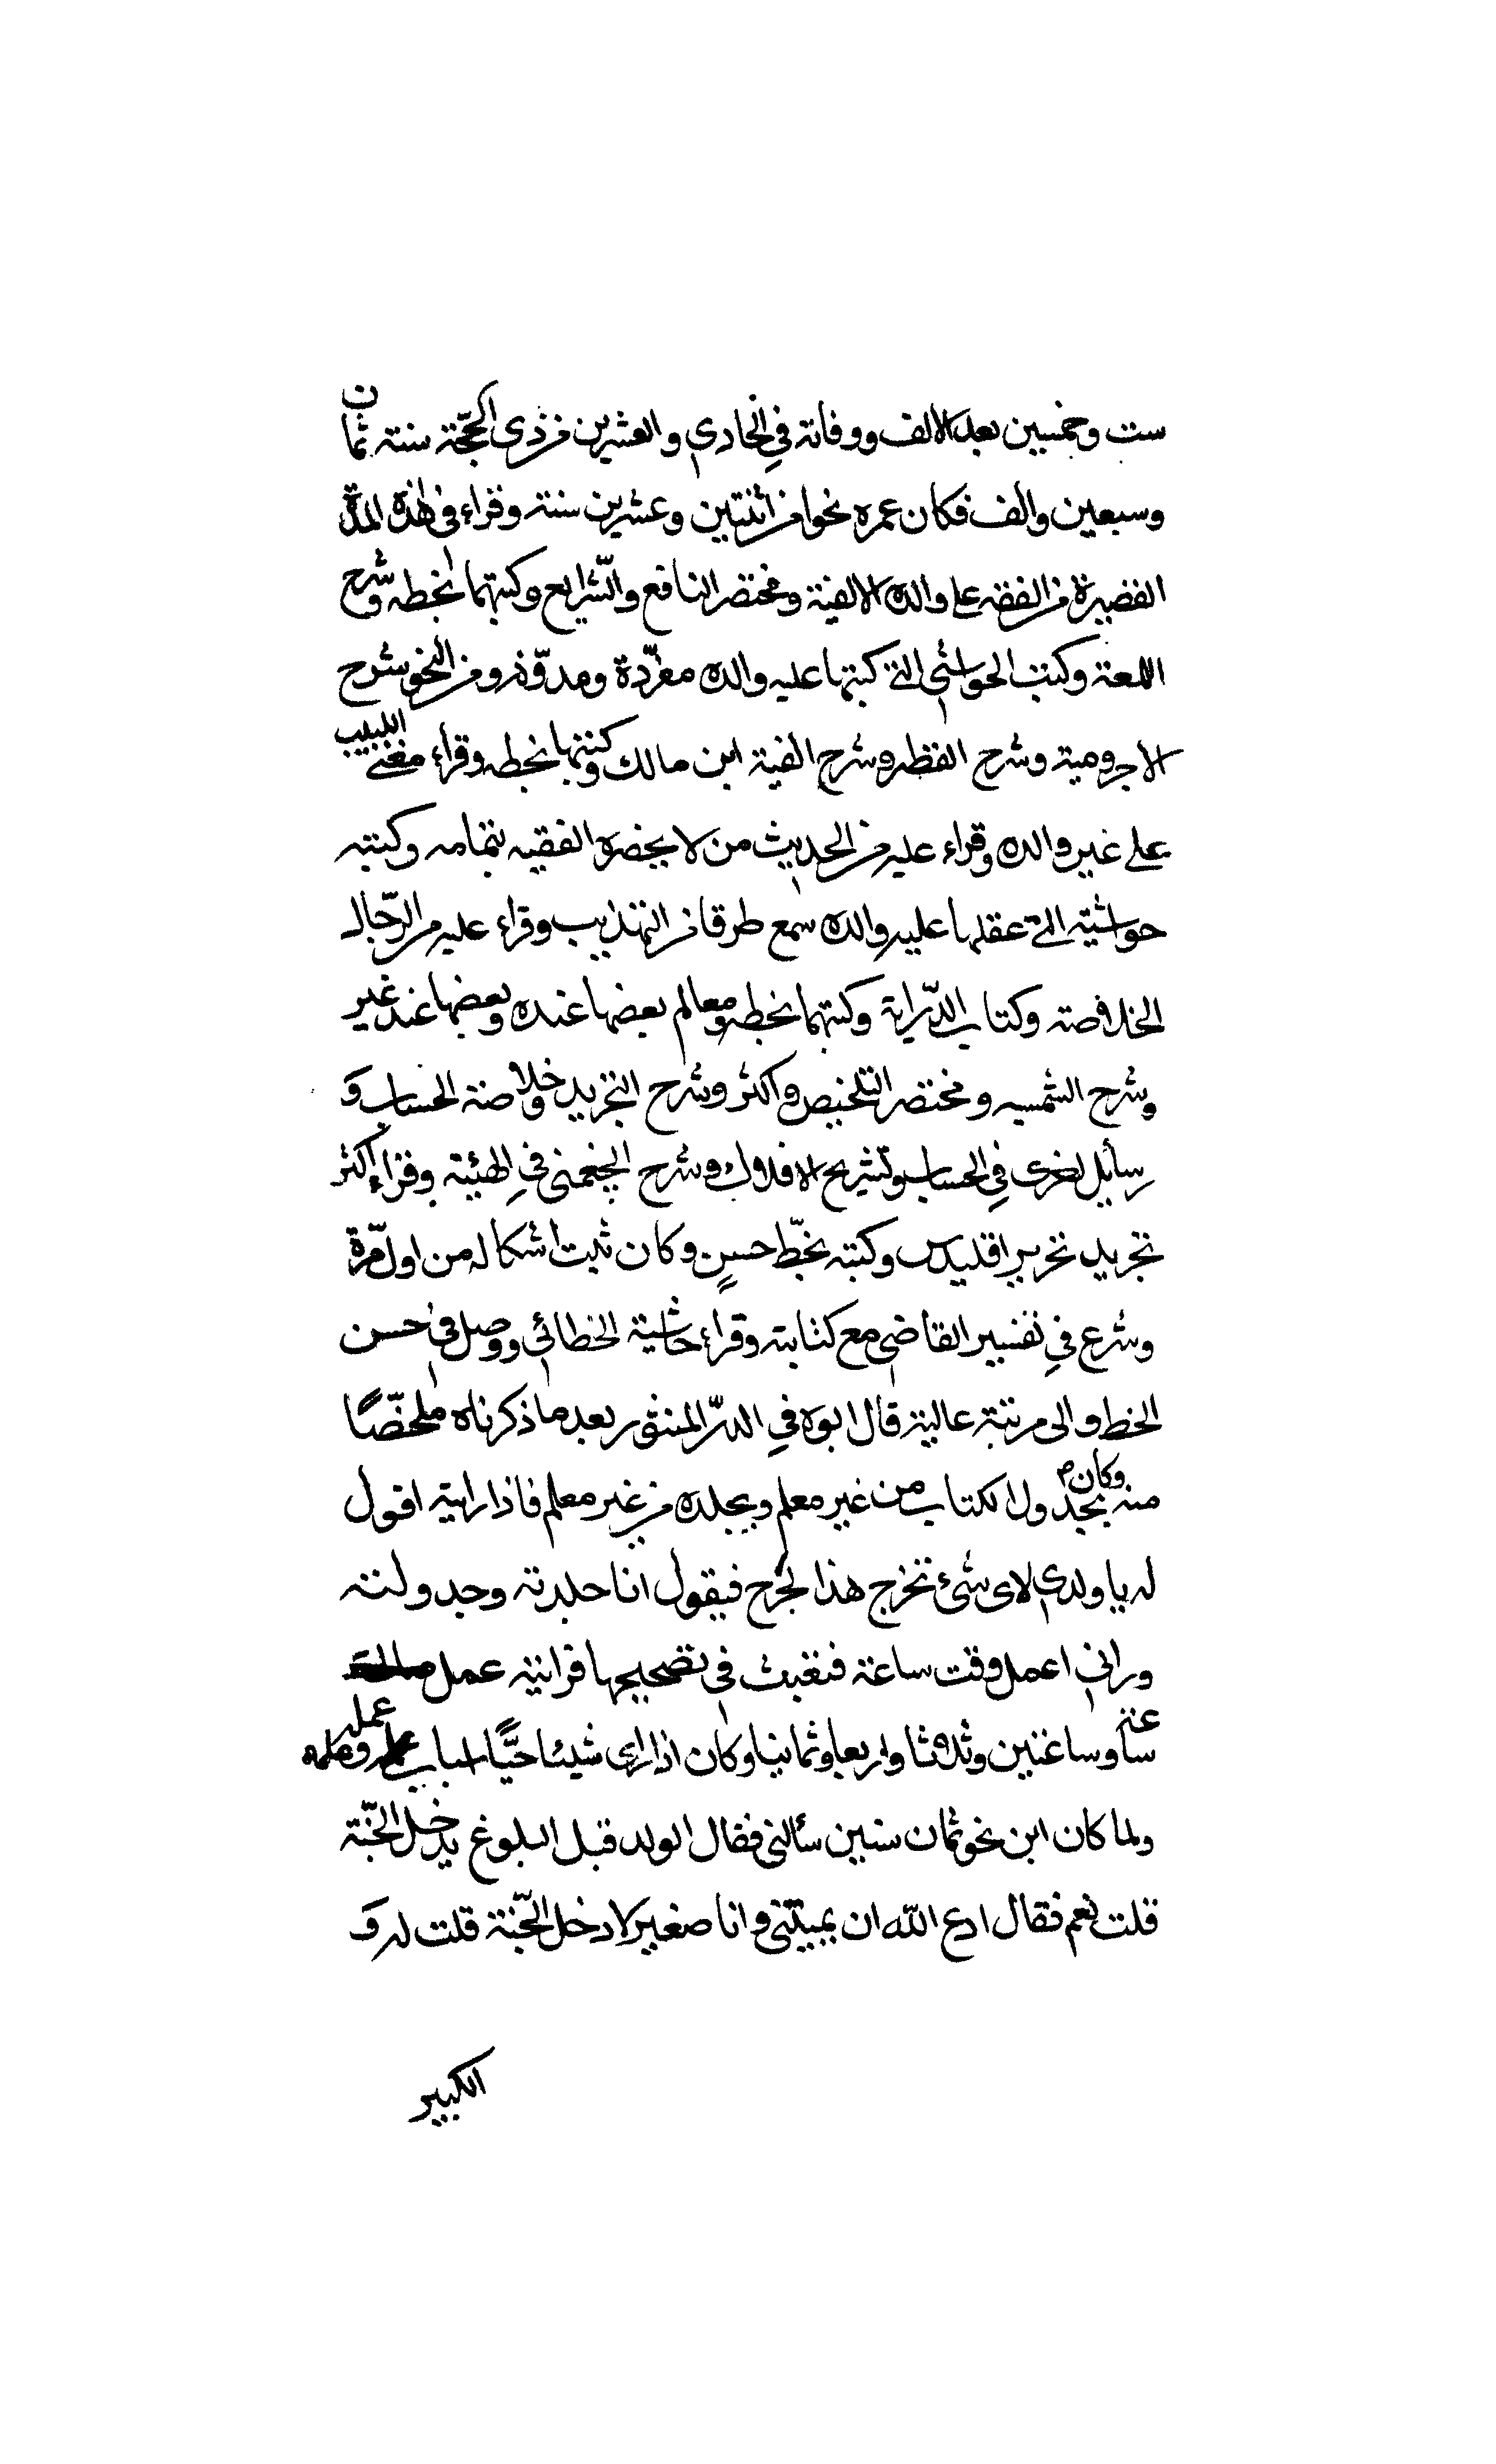 ست وخمسين بعد الالف ووفاته في الحادي والعشرين من ذي الحجّة سنة ثمان
وسبعين والف فكان عمره نحوا من اثنتين وعشرين سنة وقراء في هذه المدّة
القصيرة من الفقه على والده الالفية ومختصر النافع والشّرايع وكتبهما بخطه وشرح
اللمعة وكتب الحواشي التي كتبتها عليه والده مفرّدة ومدوّنة ومن النحو شرح
الاجرومية وشرح القطر وشرح الفية ابن مالك وكتبها بخطه وقراء مغني اللبيب
على غير والده وقراء عليه من الحديث من لا يحضره الفقيه بتمامه وكتبه
حواشيه التي عقلها عليه والده سمع طرفا من التهذيب وقراء عليه من الرّجال
الخلاصة وكتاب الدّراية وكتبهما بخطه ومعالم بعضها عنده وبعضها عند غير
وشرح الشمسيه ومختصر التلخيص واكثر وشرح التجريد وخلاصة الحساب و
رسايل اخرى في الحساب وتشريح الافلاك وشرح الچغمني في الهيئة وقراء اكثر
تجريد تحرير اقليدس وكتبه بخطّ حسنٍ وكان يثبت اشكاله من اول مرّة
وشرع في تفسير القاضي مع كتابته وقراء حاشية الخطائي ووصل في حسن
الخط والى مرتبة عالية قال ابوه في الدرّ المنثور بعد ما ذكرناه ملخّصًا
منه وكان يجدول الكتاب من غير معلم ويجلده من غير معلم فاذا رايته اقول
له يا ولدي لاي شئ تخرج هذا لخرج فيقول انا جلدته وجدولته
وراني اعمل وقت ساعة فتعبت في تصحيحها فرايته عمل
ساعة وساعتين وثلاثا واربعا وثمانيا وكان اذا راى شيئا حيًّا اسباب عمله وعمله
ولما كان ابن نحو ثمان سنين سألني فقال الولد قبل البلوغ يدخل الجنّة
قلت نعم فقال ادع الله ان يميتني وانا صغير لادخل الجّنة قلت له و
الكبير